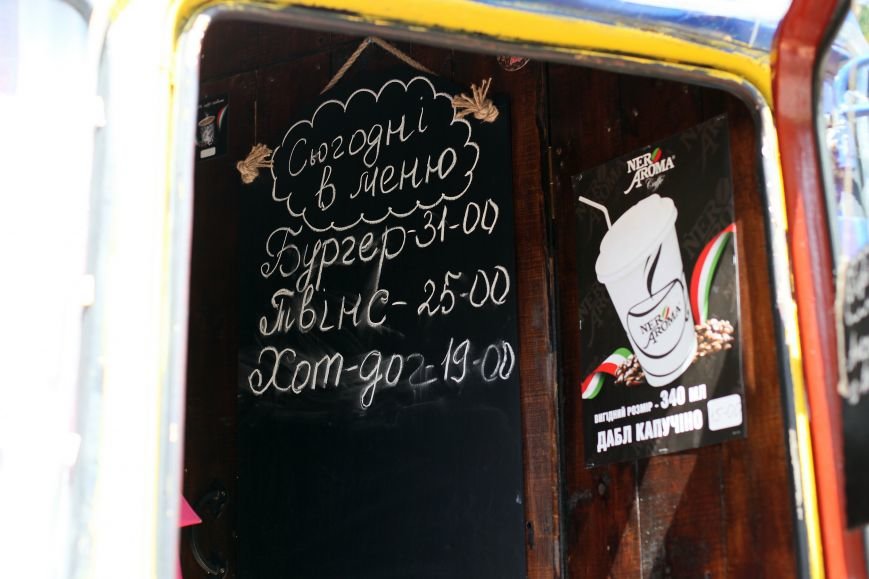 Сьогодні
в меню
Бургер-31-00
Твінс-25-00
Хот-дог-19-00
NERO
AROMA®
Caffe
NERO
AROMA
ВИГІДНИЙ РОЗМІР - 340 МЛ
ДАБЛ КАПУЧІНО